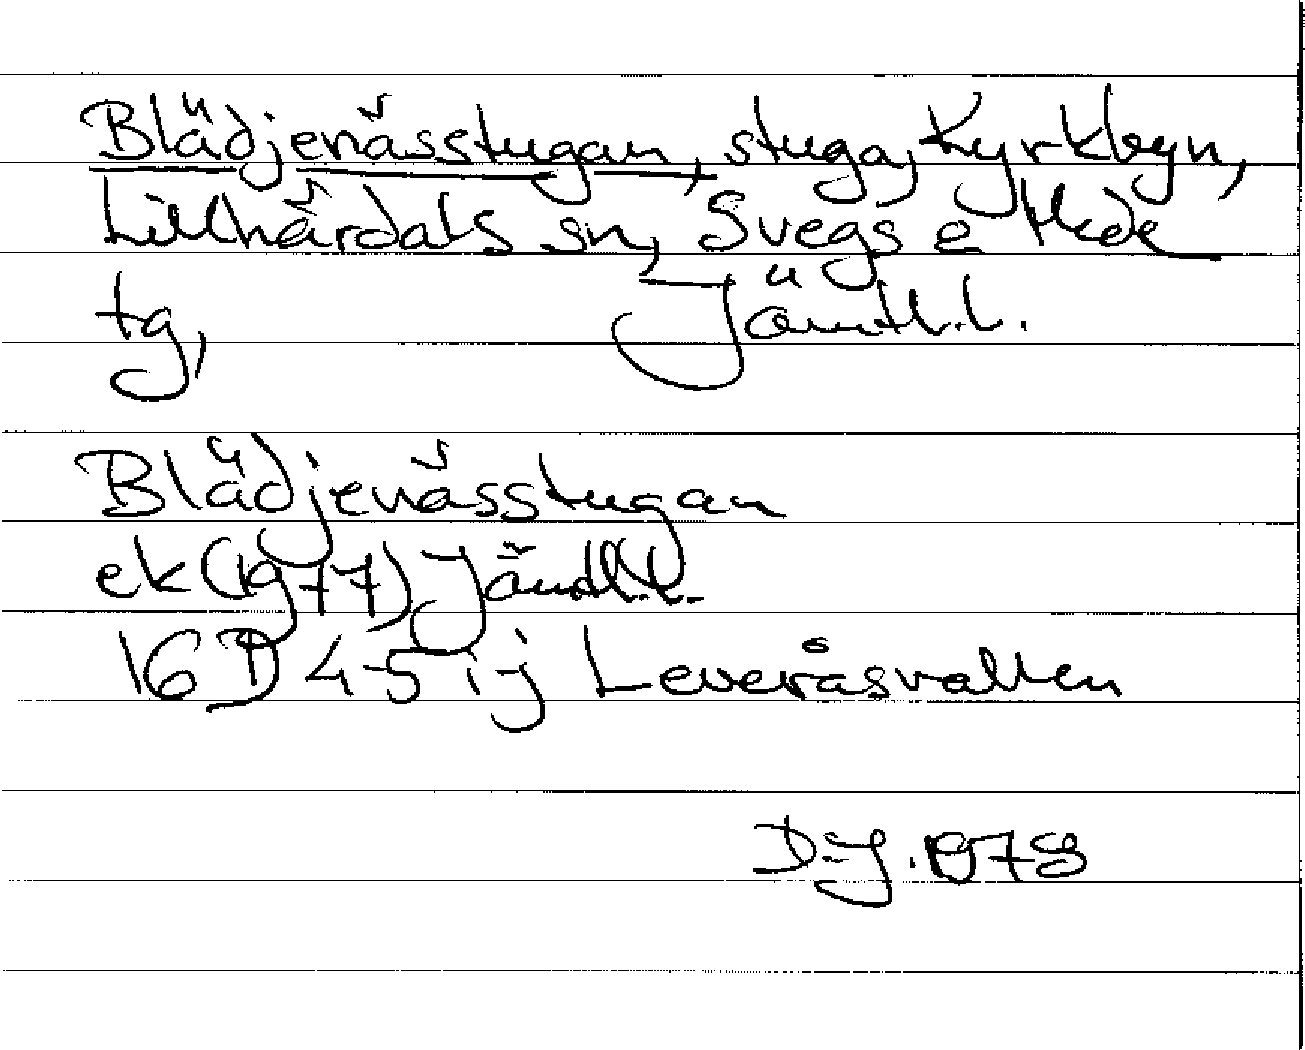 Blädjenässtugan, stuga, Kyrkbyn,
Lillhärdals sn, Svegs o Hede
tg, Jämtl.l.
Blädjenässtugan
ek (1977) Jämtl.l.
16D 4-5 ij Leveråsvallen
D-J. 1978